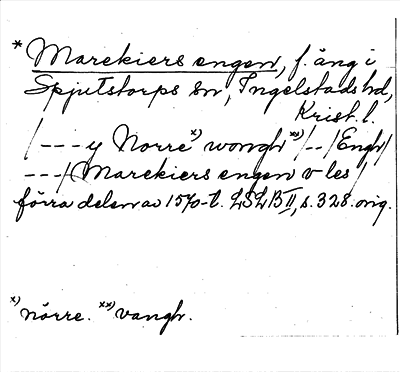 * Marekiers engen, f. äng i
Spjutstorps sn, Ingelstads hd,
Krist. l.
/---y Norre x) wongh xx)/--/Engh/
---/Marekiers engen v les/
förra delen av 1570-t. LSLB II, s. 328. orig.
x) nörre. xx) vangh.